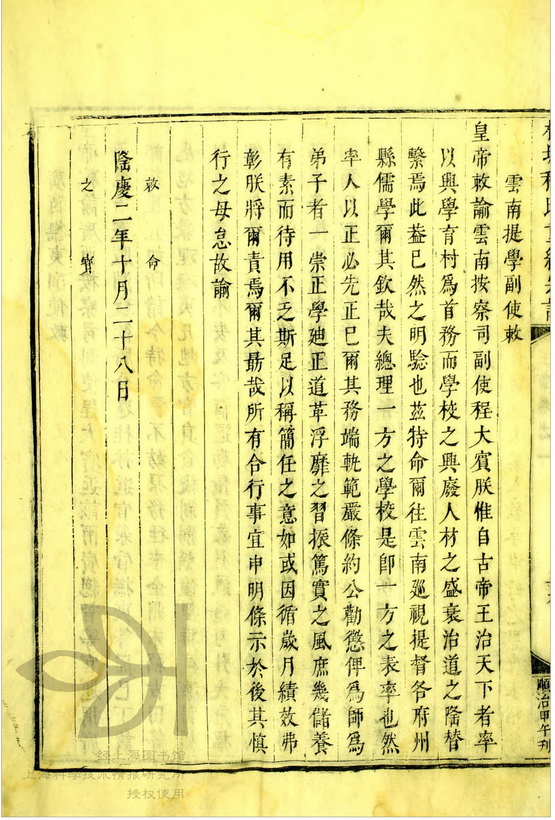 雲南提學副使敕
皇帝敕諭雲南按察司副使程大賓朕惟自古帝王治天下者率
以興學育材爲首務而學校之興廢人材之盛衰治道之隆替
繫焉此葢已然之明驗也茲特命爾往雲南廵視提督各府州
縣儒學爾其欽哉夫總理一方之學校是卽一方之表率也然
率人以正必先正巳爾其務端軌範嚴條約公勸懲俾爲師爲
弟子者一崇正學廸正道革浮靡之習振篤實之風庶幾儲養
有素而待用不乏斯足以稱簡任之意如或因循歲月績效弗
彰朕將爾責焉爾其勗哉所有合行事宜申明條示於後其慎
行之毋怠故諭
敕命
隆慶二年十月二十八日
之寶
順治甲午刊
上海图书馆
上海科学技术情报研究所
授权使用